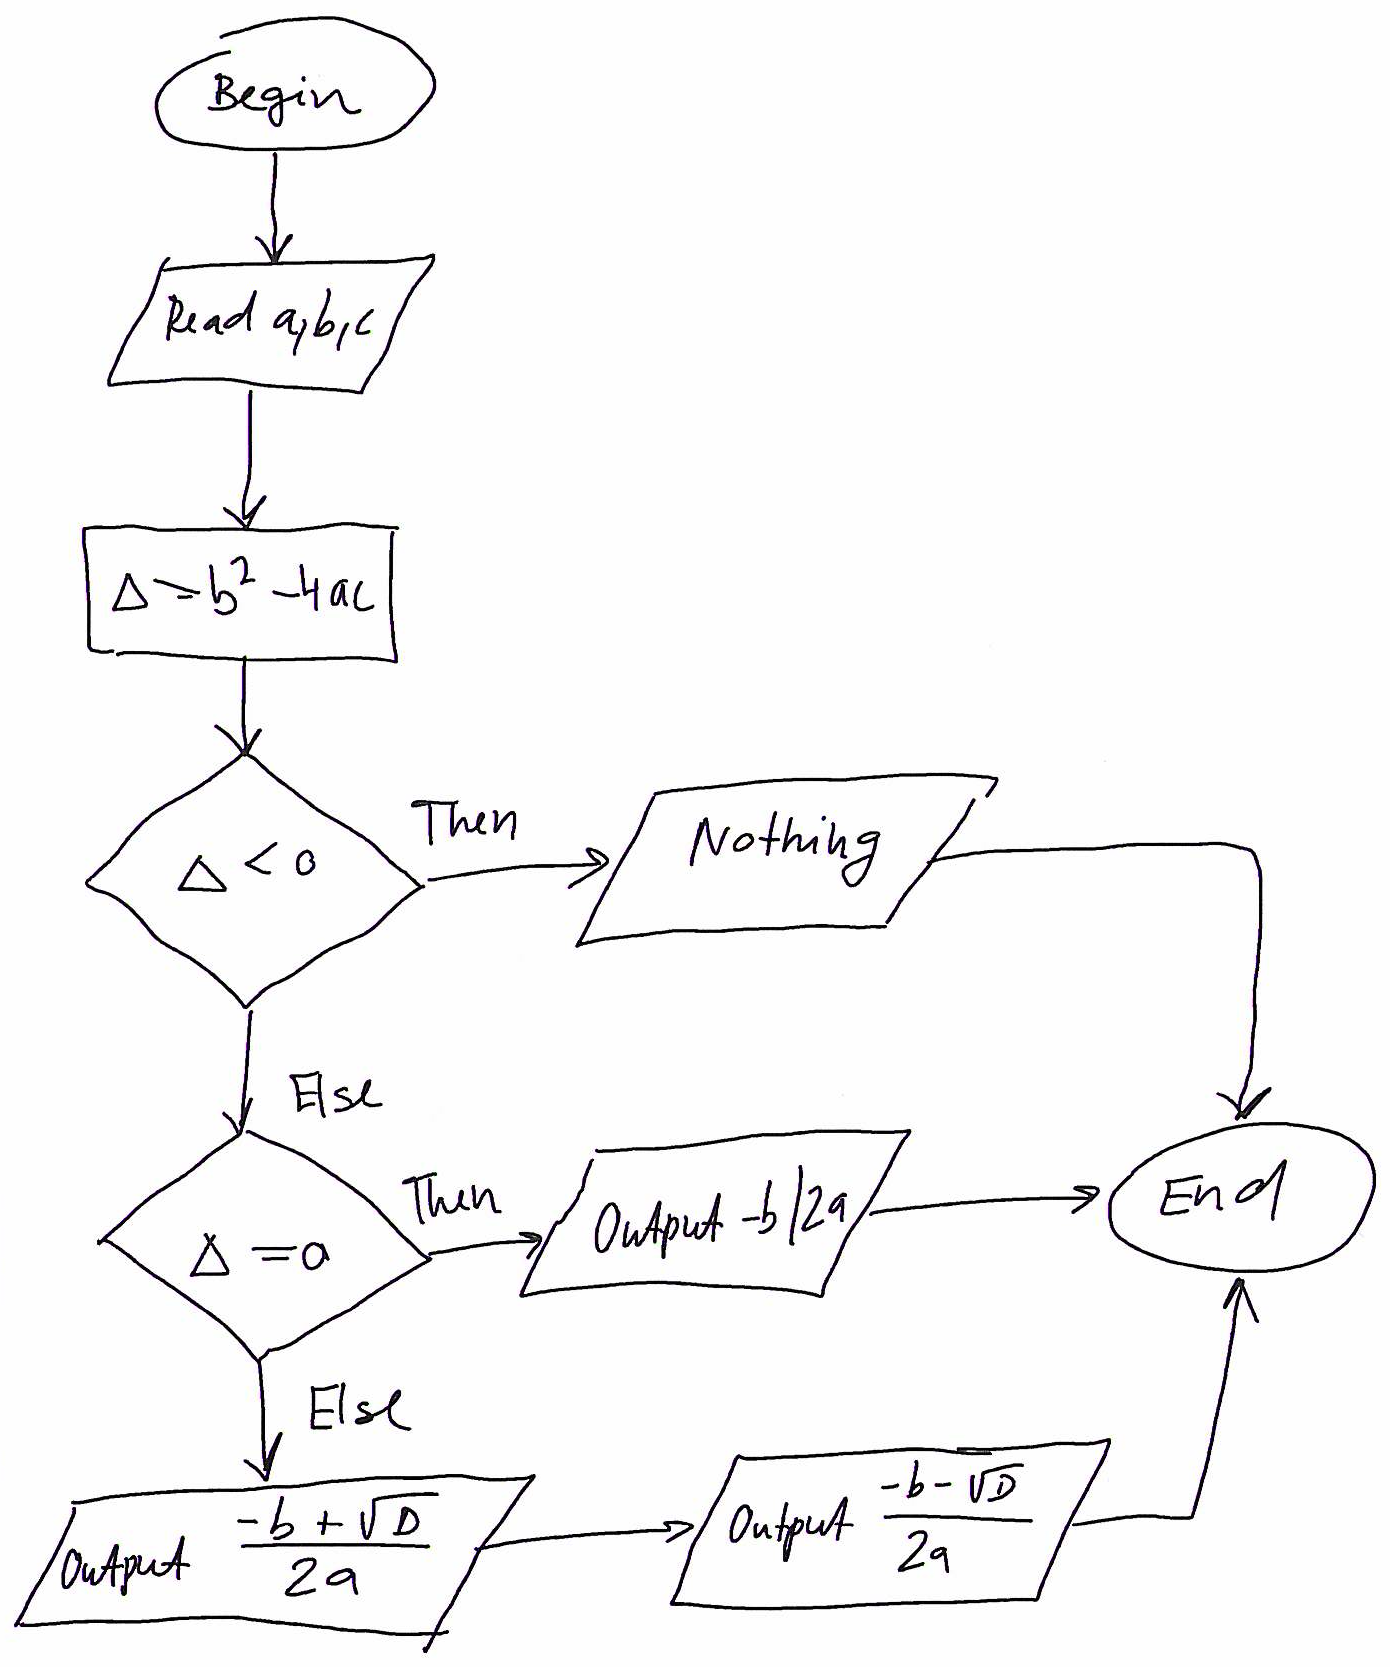 Begin
Read a,b,c
Δ = b² - 4ac
Δ < 0
Then
Nothing
Else
Δ = 0
Then
Output -b/2a
End
Else
Output (-b + √D)/2a
Output (-b - √D)/2a